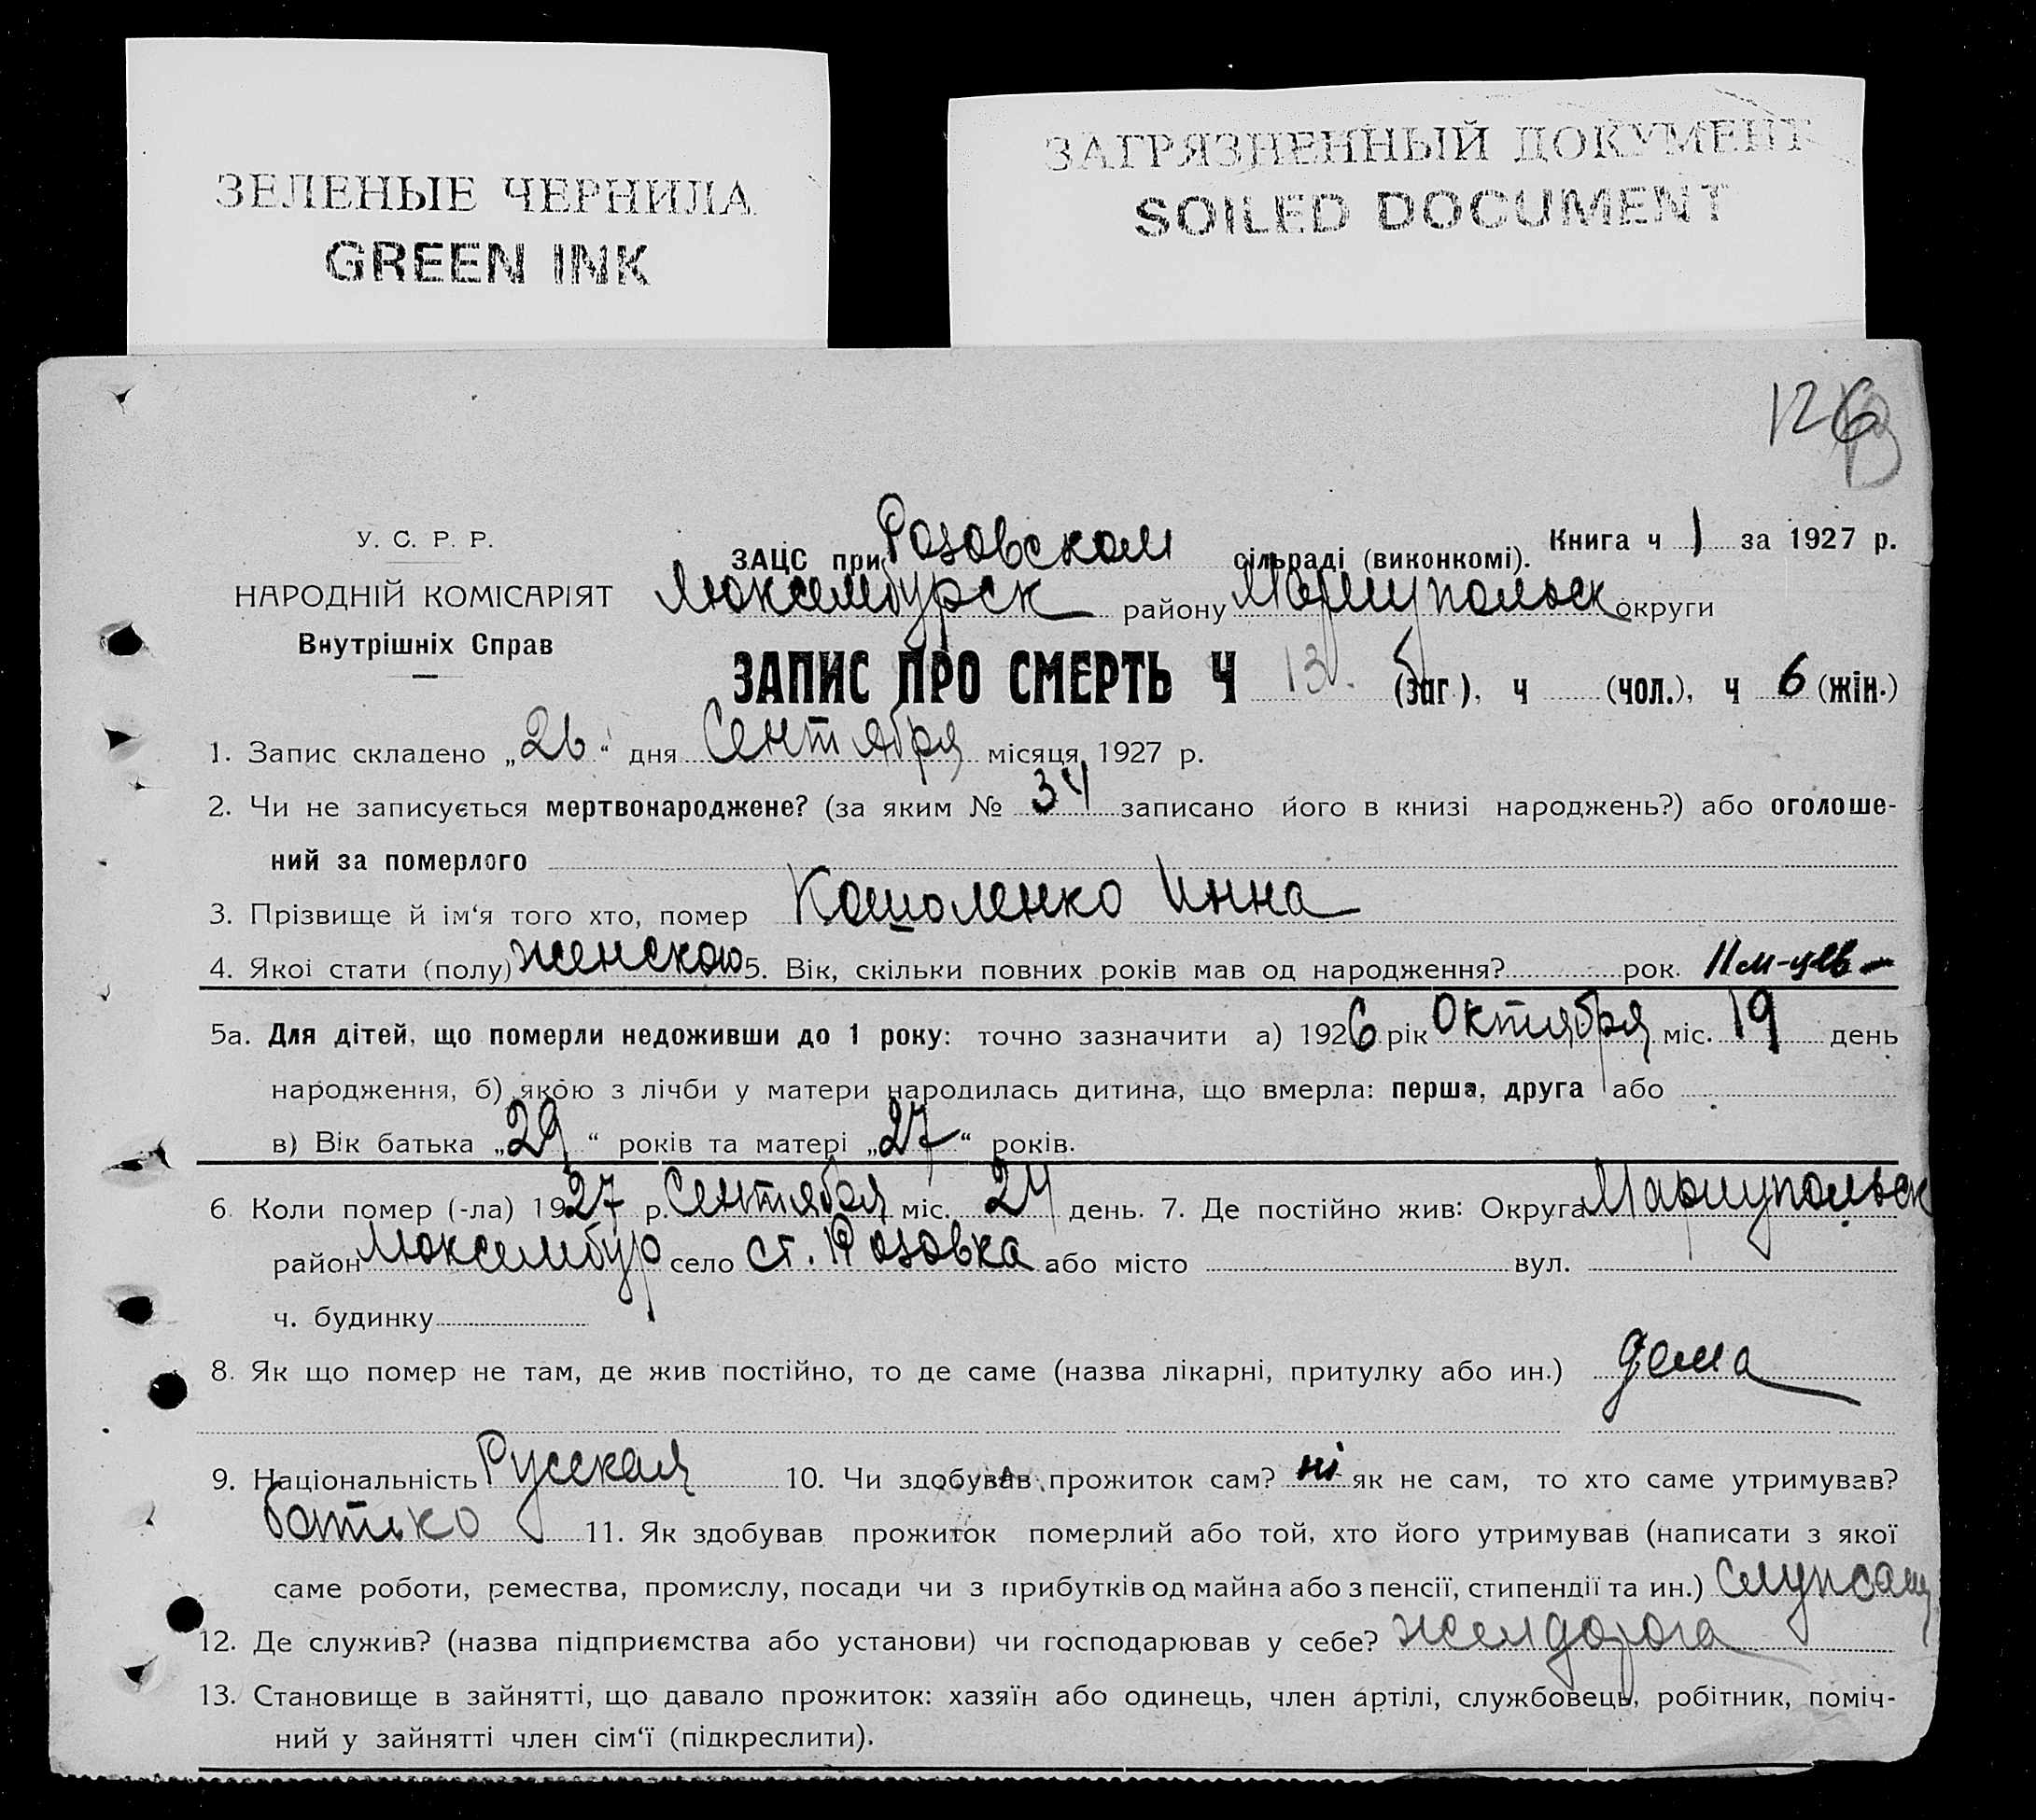 ЗЕЛЕНЫЕ ЧЕРНИЛА
GREEN INK
ЗАГРЯЗНЕННЫЙ ДОКУМЕНТ
SOILED DOCUMENT
126
У. С. Р. Р.
НАРОДНІЙ КОМІСАРІЯТ
Внутрішніх Справ
Книга ч 1 за 1927 р.
ЗАЦС при Розовском сільраді (виконкомі).
Люксембурск району Мариупольск округи
ЗАПИС ПРО СМЕРТЬ Ч 13. (заг.), ч (чол.), ч 6 (жін.)
1. Запис складено „26“ дня Сентября місяця 1927 р.
2. Чи не записується мертвонароджене? (за яким № 34 записано його в книзі народжень?) або оголоше-
ний за померлого
3. Прізвище й ім‘я того хто, помер Кошоленко Инна
4. Якої стати (полу) женскою 5. Вік, скільки повних років мав од народження? рок. 11 м-цев
5а. Для дітей, що померли недоживши до 1 року: точно зазначити а) 1926 рік Октября міс. 19 день
народження, б) якою з лічби у матери народилась дитина, що вмерла: перша, друга або
в) Вік батька „29“ років та матері „27“ років.
6. Коли помер (-ла) 1927 р. Сентября міс. 24 день. 7. Де постійно жив: Округа Мариупольск
район Люксембур село ст. Розовка або місто вул.
ч. будинку
8. Як що помер не там, де жив постійно, то де саме (назва лікарні, притулку або ин.) дома
9. Національність Русская 10. Чи здобував прожиток сам? ні як не сам, то хто саме утримував?
батько 11. Як здобував прожиток померлий або той, хто його утримував (написати з якої
саме роботи, ремества, промислу, посади чи з прибутків од майна або з пенсії, стипендії та ин.) служащ
12. Де служив? (назва підприємства або установи) чи господарював у себе? желдорога
13. Становище в зайнятті, що давало прожиток: хазяїн або одинець, член артілі, службовець, робітник, поміч-
ний у зайнятті член сім‘ї (підкреслити).